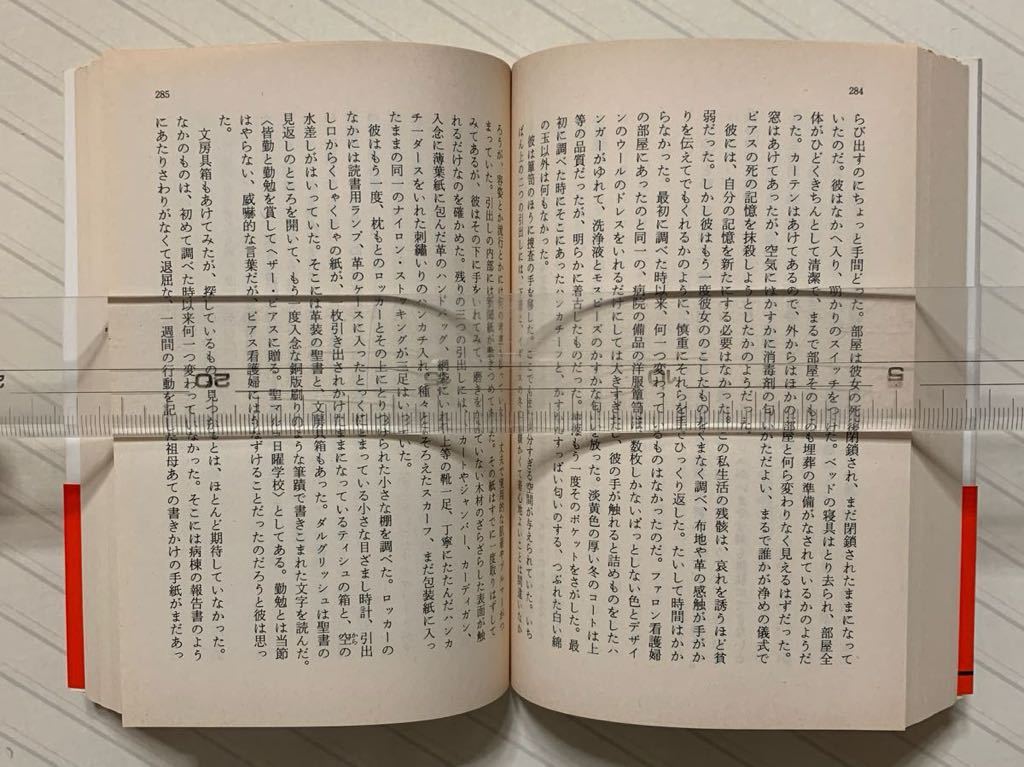 284
らび出すのにちょっと手間どった。部屋は彼女の死後閉鎖され、まだ閉鎖されたままになって
いたのだ。彼はなかへ入り、明かりのスイッチをつけた。ベッドの寝具はとり去られ、部屋全
体がひどくきちんとして清潔で、まるで部屋そのものも埋葬の準備がなされているかのようだ
った。カーテンはあけてあるので、外からはほかの部屋と何ら変わりなく見えるはずだった。
窓はあけてあったが、空気にはかすかに消毒剤の匂いがただよい、まるで誰かが浄めの儀式で
ピアスの死の記憶を抹殺しようとしたかのようだった。
彼には、自分の記憶を新たにする必要はなかった。この私生活の残骸は、哀れを誘うほど貧
弱だった。しかし彼はもう一度彼女ののこしたものをくまなく調べ、布地や革の感触が手がか
りを伝えてでもくれるかのように、慎重にそれらを手でひっくり返した。たいして時間はかか
らなかった。最初に調べた時以来、何一つ変わっているものはなかったのだ。ファロン看護婦
の部屋にあったのと同一の、病院の備品の洋服簞笥は、数枚しかないぱっとしない色とデザイ
ンのウールのドレスをいれるだけにしては大きすぎたし、彼の手が触れると詰めものをしたハ
ンガーがゆれて、洗浄液とモスビーズのかすかな匂いを放った。淡黄色の厚い冬のコートは上
等の品質だったが、明らかに着古したものだった。彼はもう一度そのポケットをさがした。最
初に調べた時にそこにあったハンカチーフと、かすかにすっぱい匂いのする、つぶれた白い綿
の玉以外は何もなかった。
彼は簞笥のほうに捜査の手を移した。ここでも
285
みてあるが、彼はその下に手をいれてみて、磨きをかけていない木材のざらざらした表面が触
れるだけなのを確かめた。残りの三つの引出しには、スカートやジャンパー、カーディガン、
入念に薄葉紙に包んだ革のハンドバッグ、網袋にいれた上等の靴一足、丁寧にたたんだハンカ
チ一ダースをいれた刺繡いりのハンカチ入れ、種々とりそろえたスカーフ、まだ包装紙に入っ
たままの同一のナイロン・ストッキングが三足はいっていた。
彼はもう一度、枕もとのロッカーとその上にとりつけられた小さな棚を調べた。ロッカーの
なかには読書用ランプ、革のケースに入ったとっくにとまっている小さな目ざまし時計、引出
し口からくしゃくしゃの紙が、一枚引き出されかけたままになっているティシュの箱と、空の
水差しがはいっていた。そこには革装の聖書と、文房具箱もあった。ダルグリッシュは聖書の
見返しのところを開いて、もう一度入念な銅版刷りのような筆蹟で書きこまれた文字を読んだ。
〈皆勤と勤勉を賞してヘザー・ピアスに贈る。聖マルク日曜学校〉としてある。勤勉とは当節
はやらない、威嚇的な言葉だが、ピアス看護婦にはうなずけることだったのだろうと彼は思っ
た。
文房具箱もあけてみたが、探しているものが見つかるとは、ほとんど期待していなかった。
なかのものは、初めて調べた時以来何一つ変わっていなかった。そこには病棟の報告書のよう
にあたりさわりがなくて退屈な、一週間の行動を記した祖母あての書きかけの手紙がまだあっ
20
5